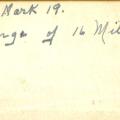 Mark 19.
of 16 Mil